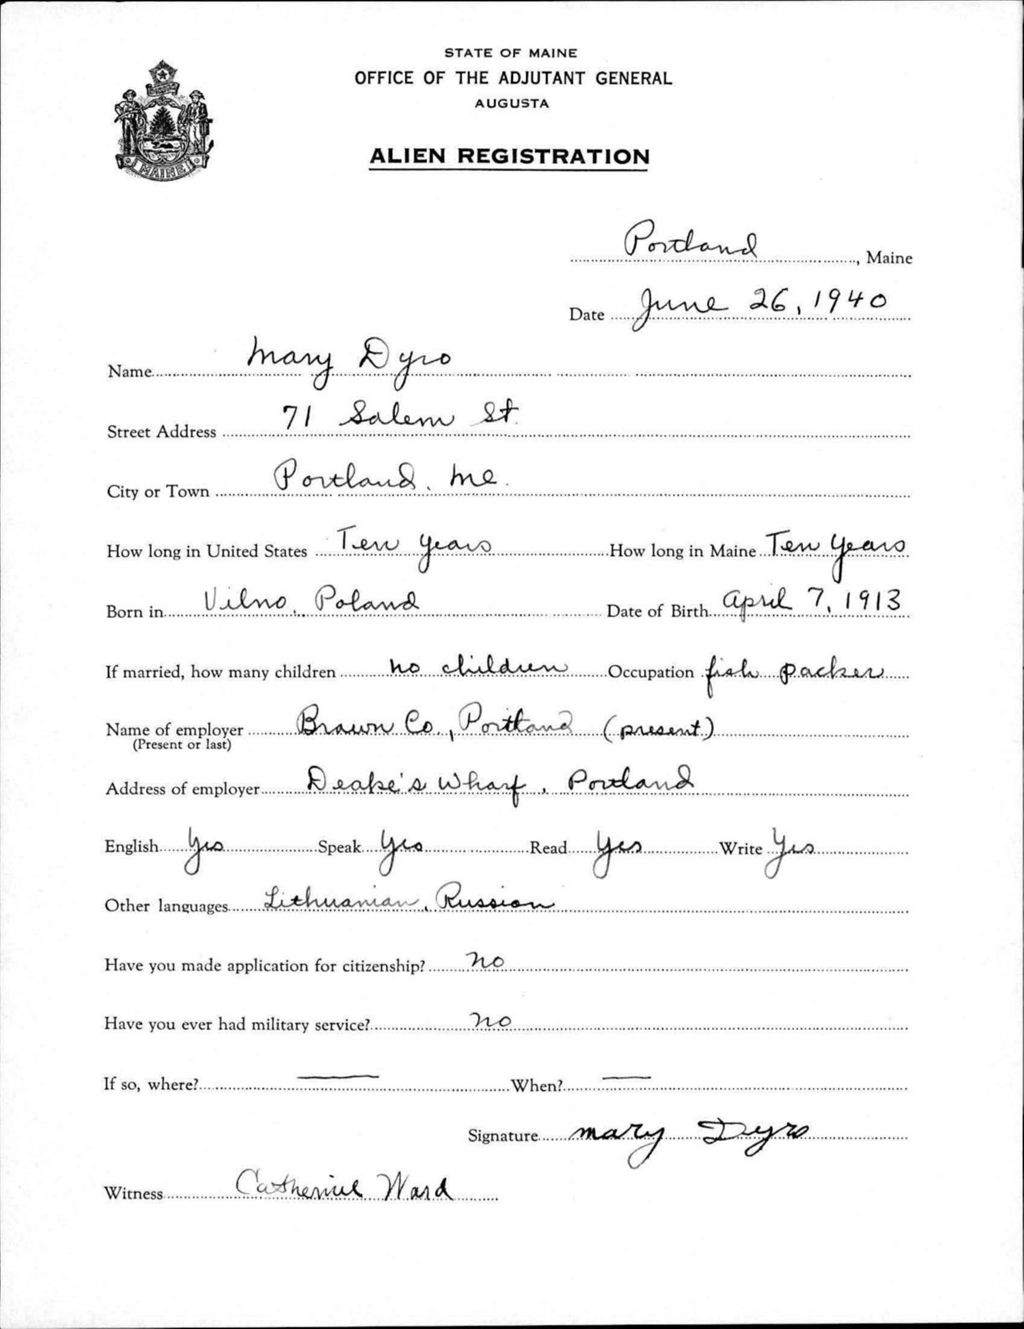 STATE OF MAINE
OFFICE OF THE ADJUTANT GENERAL
AUGUSTA
ALIEN REGISTRATION
MAINE
Portland, Maine
Date June 26, 1940
Name Mary Dyro
Street Address 71 Salem St.
City or Town Portland, Me.
How long in United States Ten years How long in Maine Ten years
Born in Vilno, Poland Date of Birth April 7, 1913
If married, how many children no children Occupation fish packer
Name of employer Brawn Co., Portland (present)
(Present or last)
Address of employer Deake's Wharf, Portland
English Yes Speak Yes Read Yes Write Yes
Other languages Lithuanian, Russian
Have you made application for citizenship? No
Have you ever had military service? No
If so, where? — When? —
Signature Mary Dyro
Witness Catherine Ward